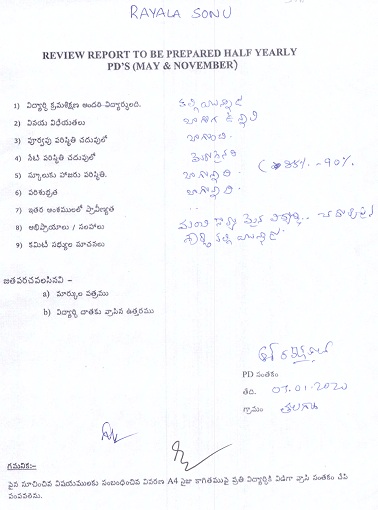 RAYALA SONU
REVIEW REPORT TO BE PREPARED HALF YEARLY
PD'S (MAY & NOVEMBER)
1) విద్యార్థి క్రమశిక్షణ అందరి విద్యార్థులది.
2) వినయ విధేయతలు
3) పూర్వపు పరిస్థితి చదువులో బాగుంది.
4) నేటి పరిస్థితి చదువులో మెరుగైనది (85% -90%.
5) స్కూలుకు హాజరు పరిస్థితి. బాగున్నది.
6) పరిశుభ్రత బాగున్నది.
7) ఇతర అంశములలో ప్రావీణ్యత ..
8) అభిప్రాయాలు / సలహాలు మంచి
9) కమిటీ సభ్యుల సూచనలు
జతపరచవలసినవి -
a) మార్కుల పత్రము
b) విద్యార్థి దాతకు వ్రాసిన ఉత్తరము
PD సంతకం
తేది. 07.01.2020
గ్రామం
గమనిక:-
పైన సూచించిన విషయములకు సంబంధించిన వివరణ A4 సైజు కాగితముపై ప్రతి విద్యార్థికి విడిగా వ్రాసి సంతకం చేసి
పంపవలెను.